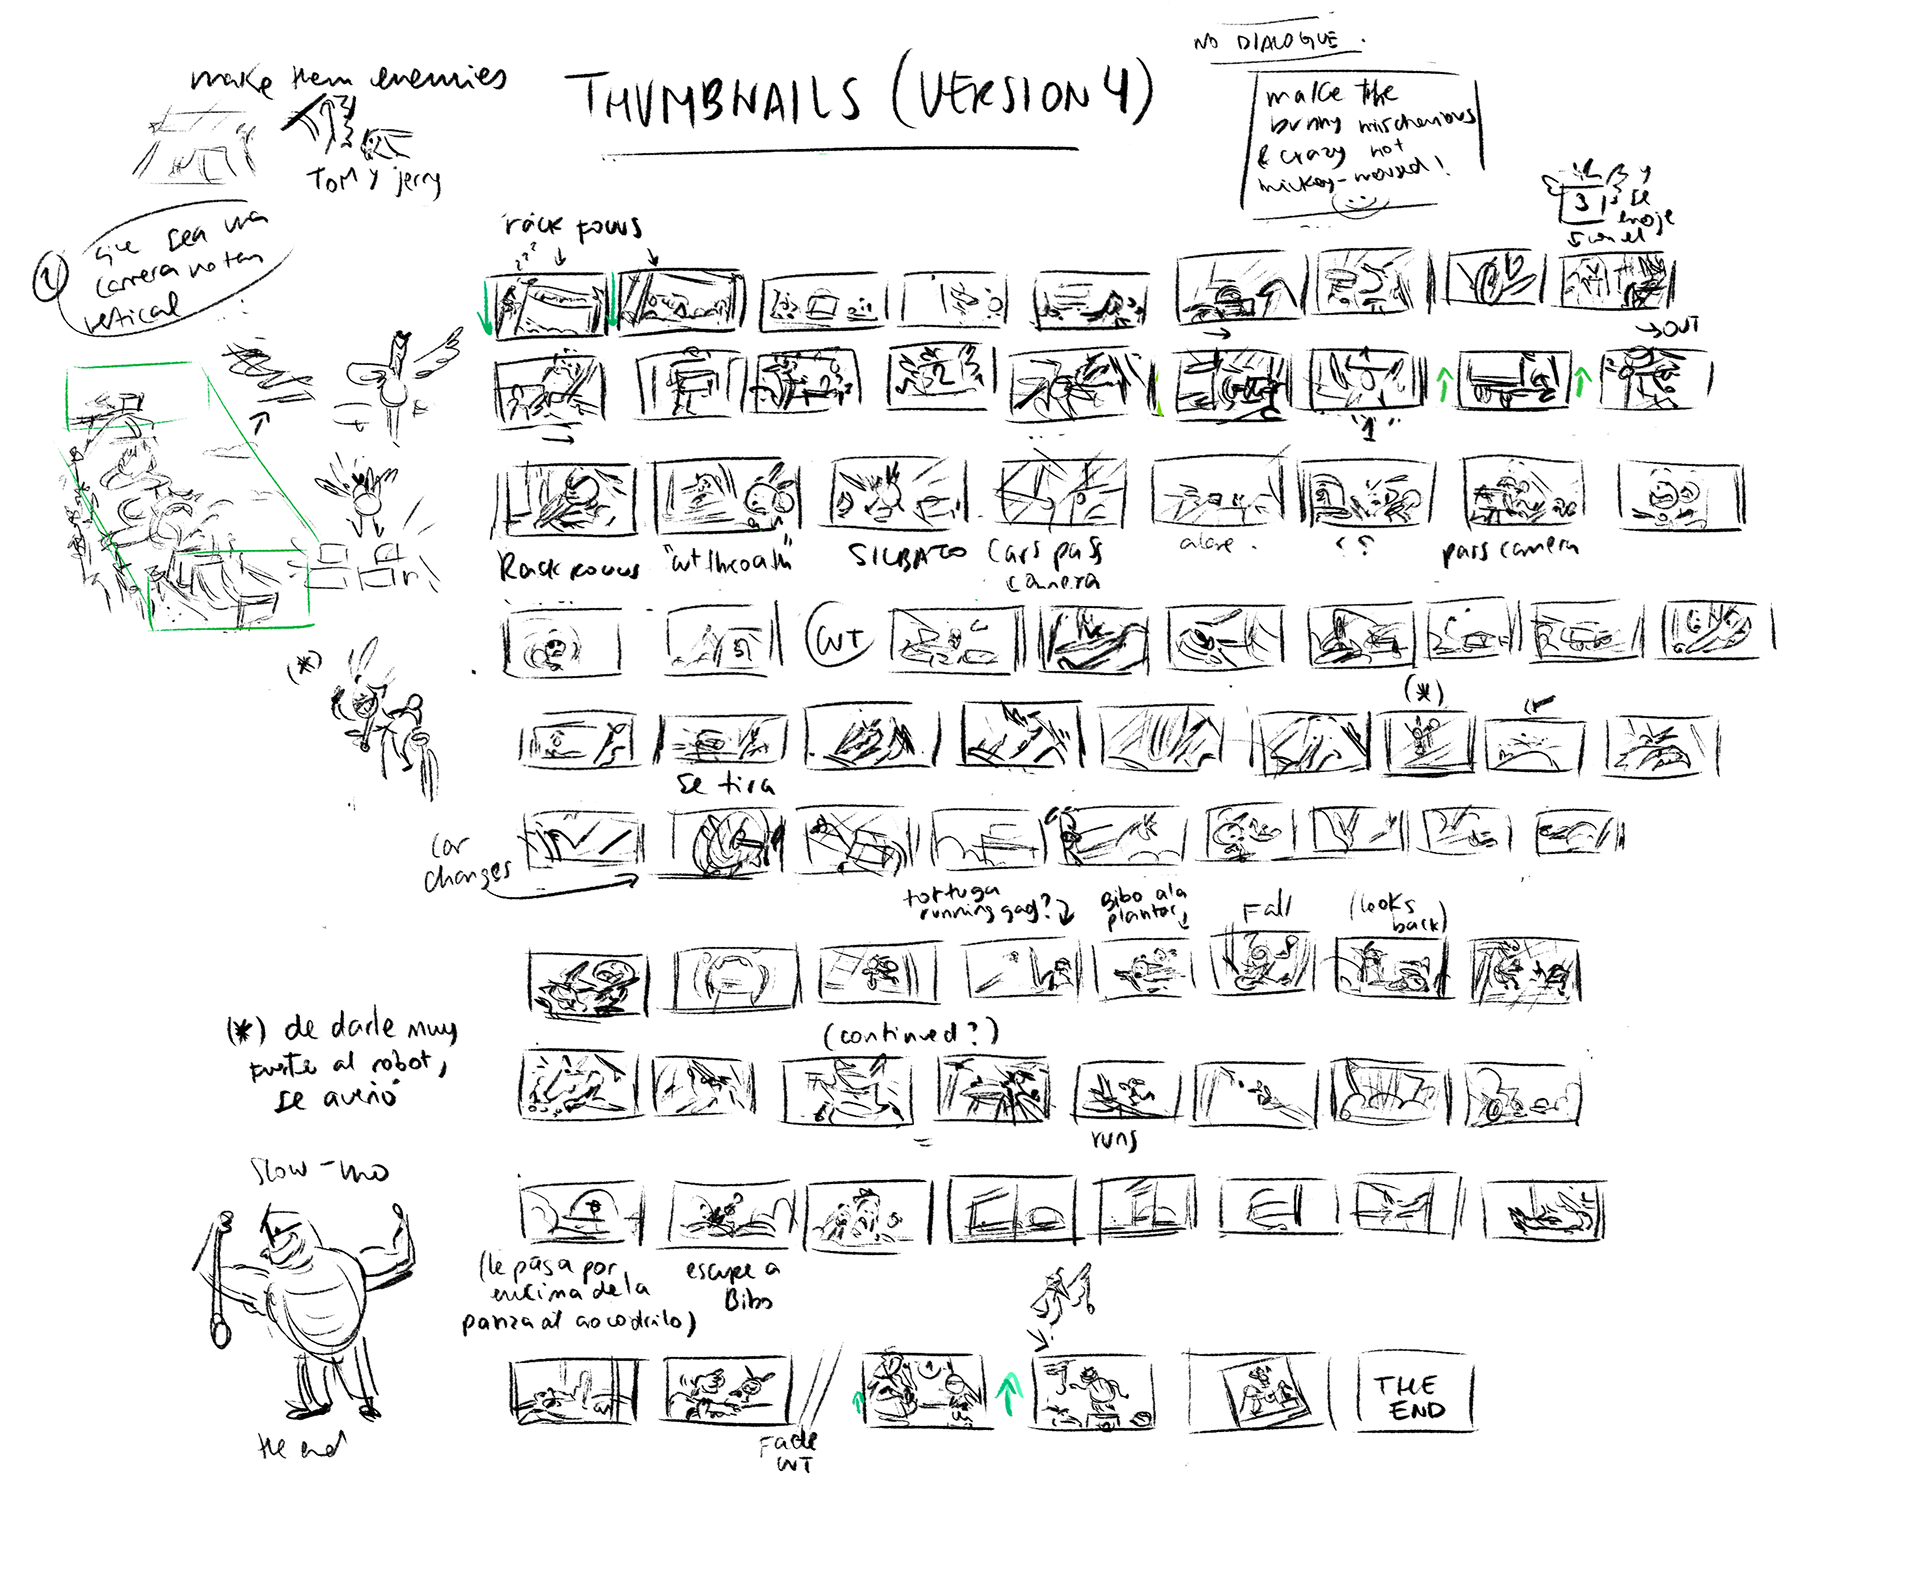 NO DIALOGUE.
make them enemies
THUMBNAILS (VERSION 4)
make the
bunny mischevious
& crazy not
mickey-moused!
TOM y jerry
3
y
se
enoje
rack focus
1
que sea una
carrera no tan
vertical
→OUT
2
"1"
Rack focus
SILBATO
Cars pass
camera
alone.
??
pass camera
CUT
(*)
(*)
se tira
Car
changes
tortuga
running gag?
Bibo a la
Fall
(looks
back)
(*) de darle muy
fuerte al robot,
se averió
(continued?)
runs
slow-mo
(le pasa por
encima de la
panza al cocodrilo)
escape a
Bibo
THE
END
Fade
CUT
the end